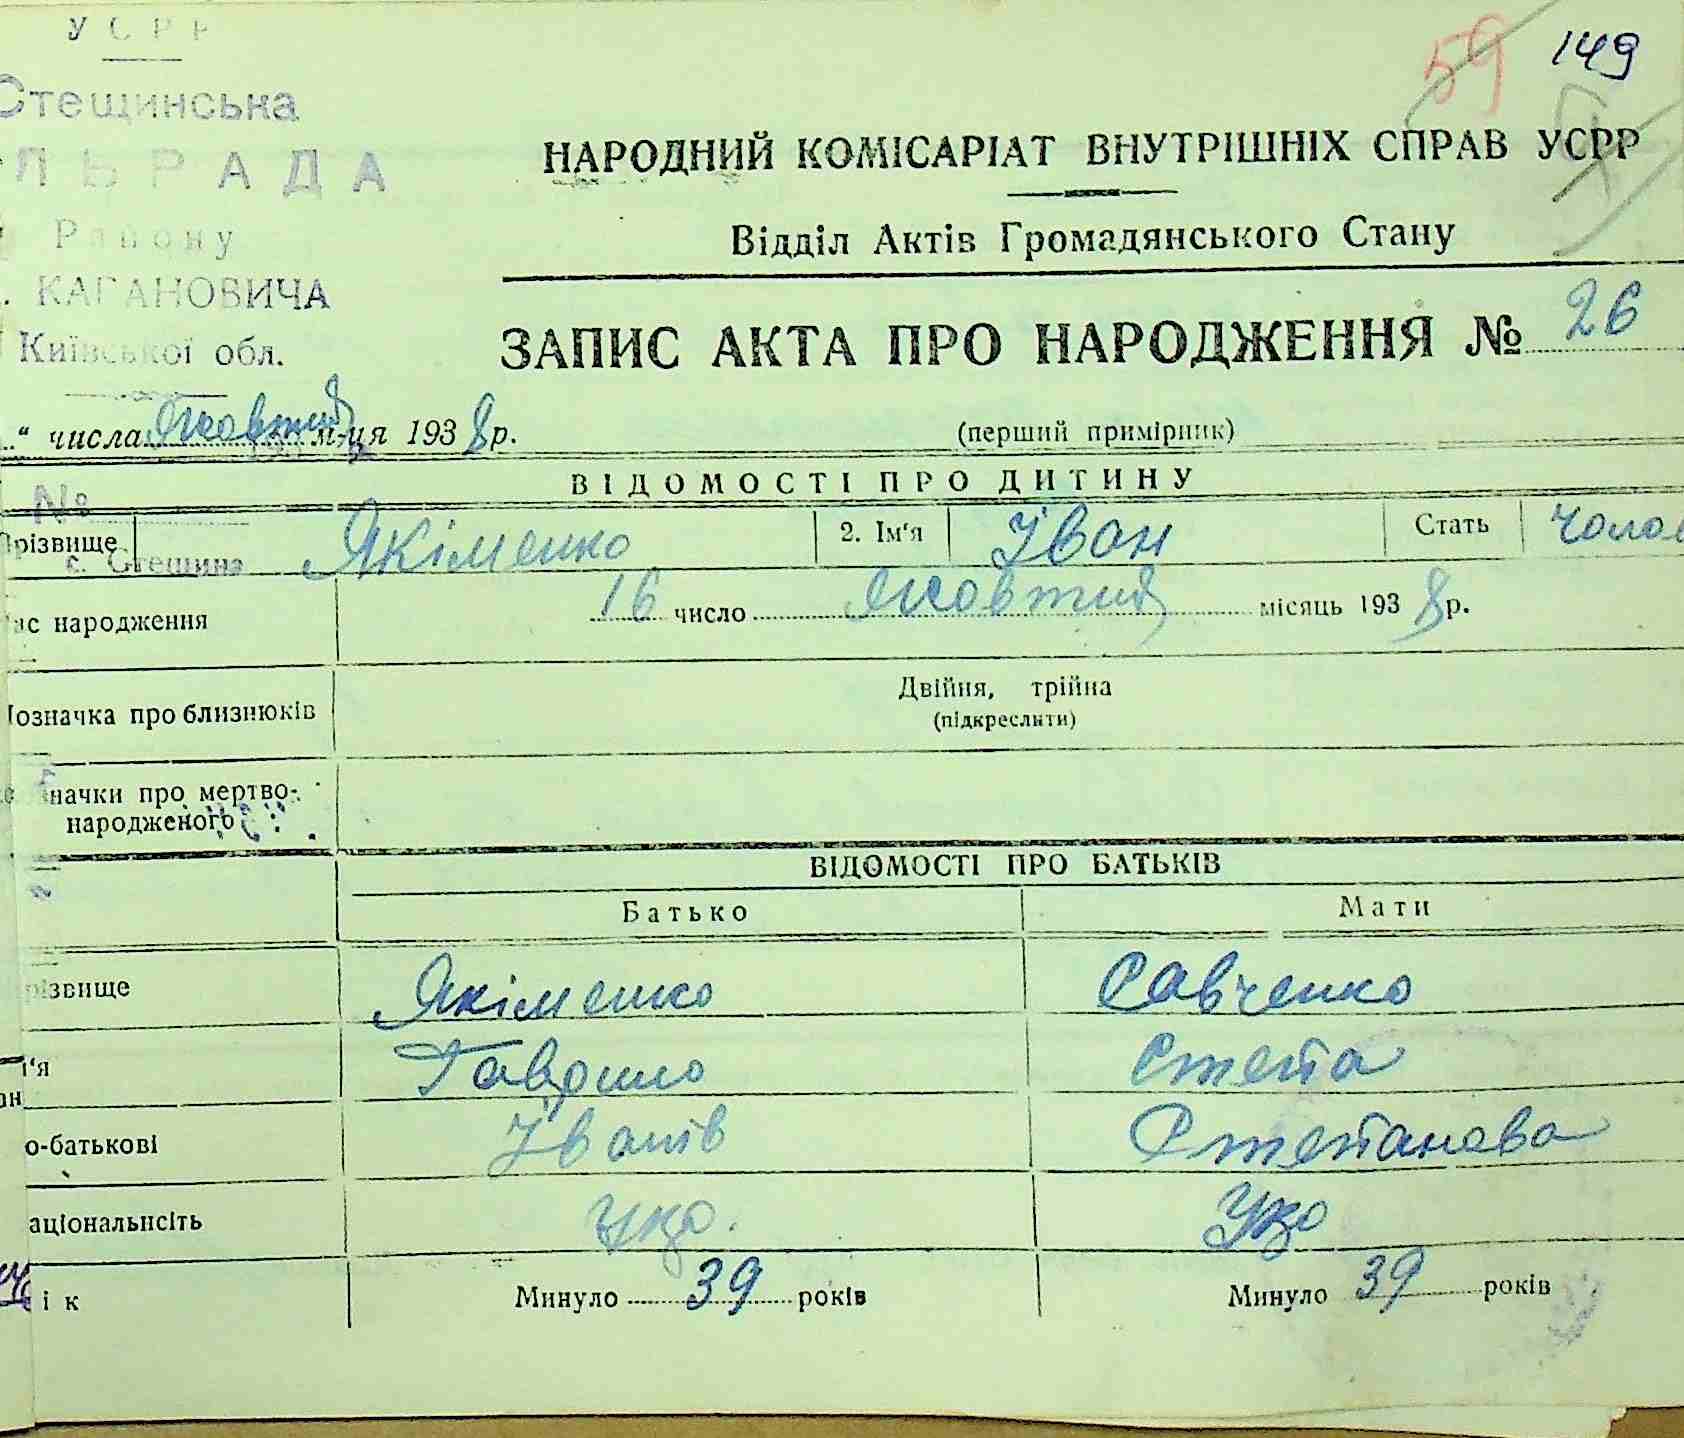 УСРР
59 149
Стещинська
ЛЬРАДА
НАРОДНИЙ КОМІСАРІАТ ВНУТРІШНІХ СПРАВ УСРР
Району
Відділ Актів Громадянського Стану
. КАГАНОВИЧА
Київської обл.
ЗАПИС АКТА ПРО НАРОДЖЕННЯ № 26
“ числа Жовтня м-ця 1938р.
(перший примірник)
ВІДОМОСТІ ПРО ДИТИНУ
№
прізвище Якіменко 2. Ім‘я Іван Стать чолов
с. Стещина
ас народження 16 число Жовтня місяць 1938р.
Позначка про близнюків Двійня, трійна
(підкреслити)
значки про мертво-
народженого
ВІДОМОСТІ ПРО БАТЬКІВ
Батько Мати
різвище Якіменко Савченко
м‘я Гаврило Степа
о-батькові Іванів Степанова
аціональнсіть Укр. Укр
ік Минуло 39 років Минуло 39 років